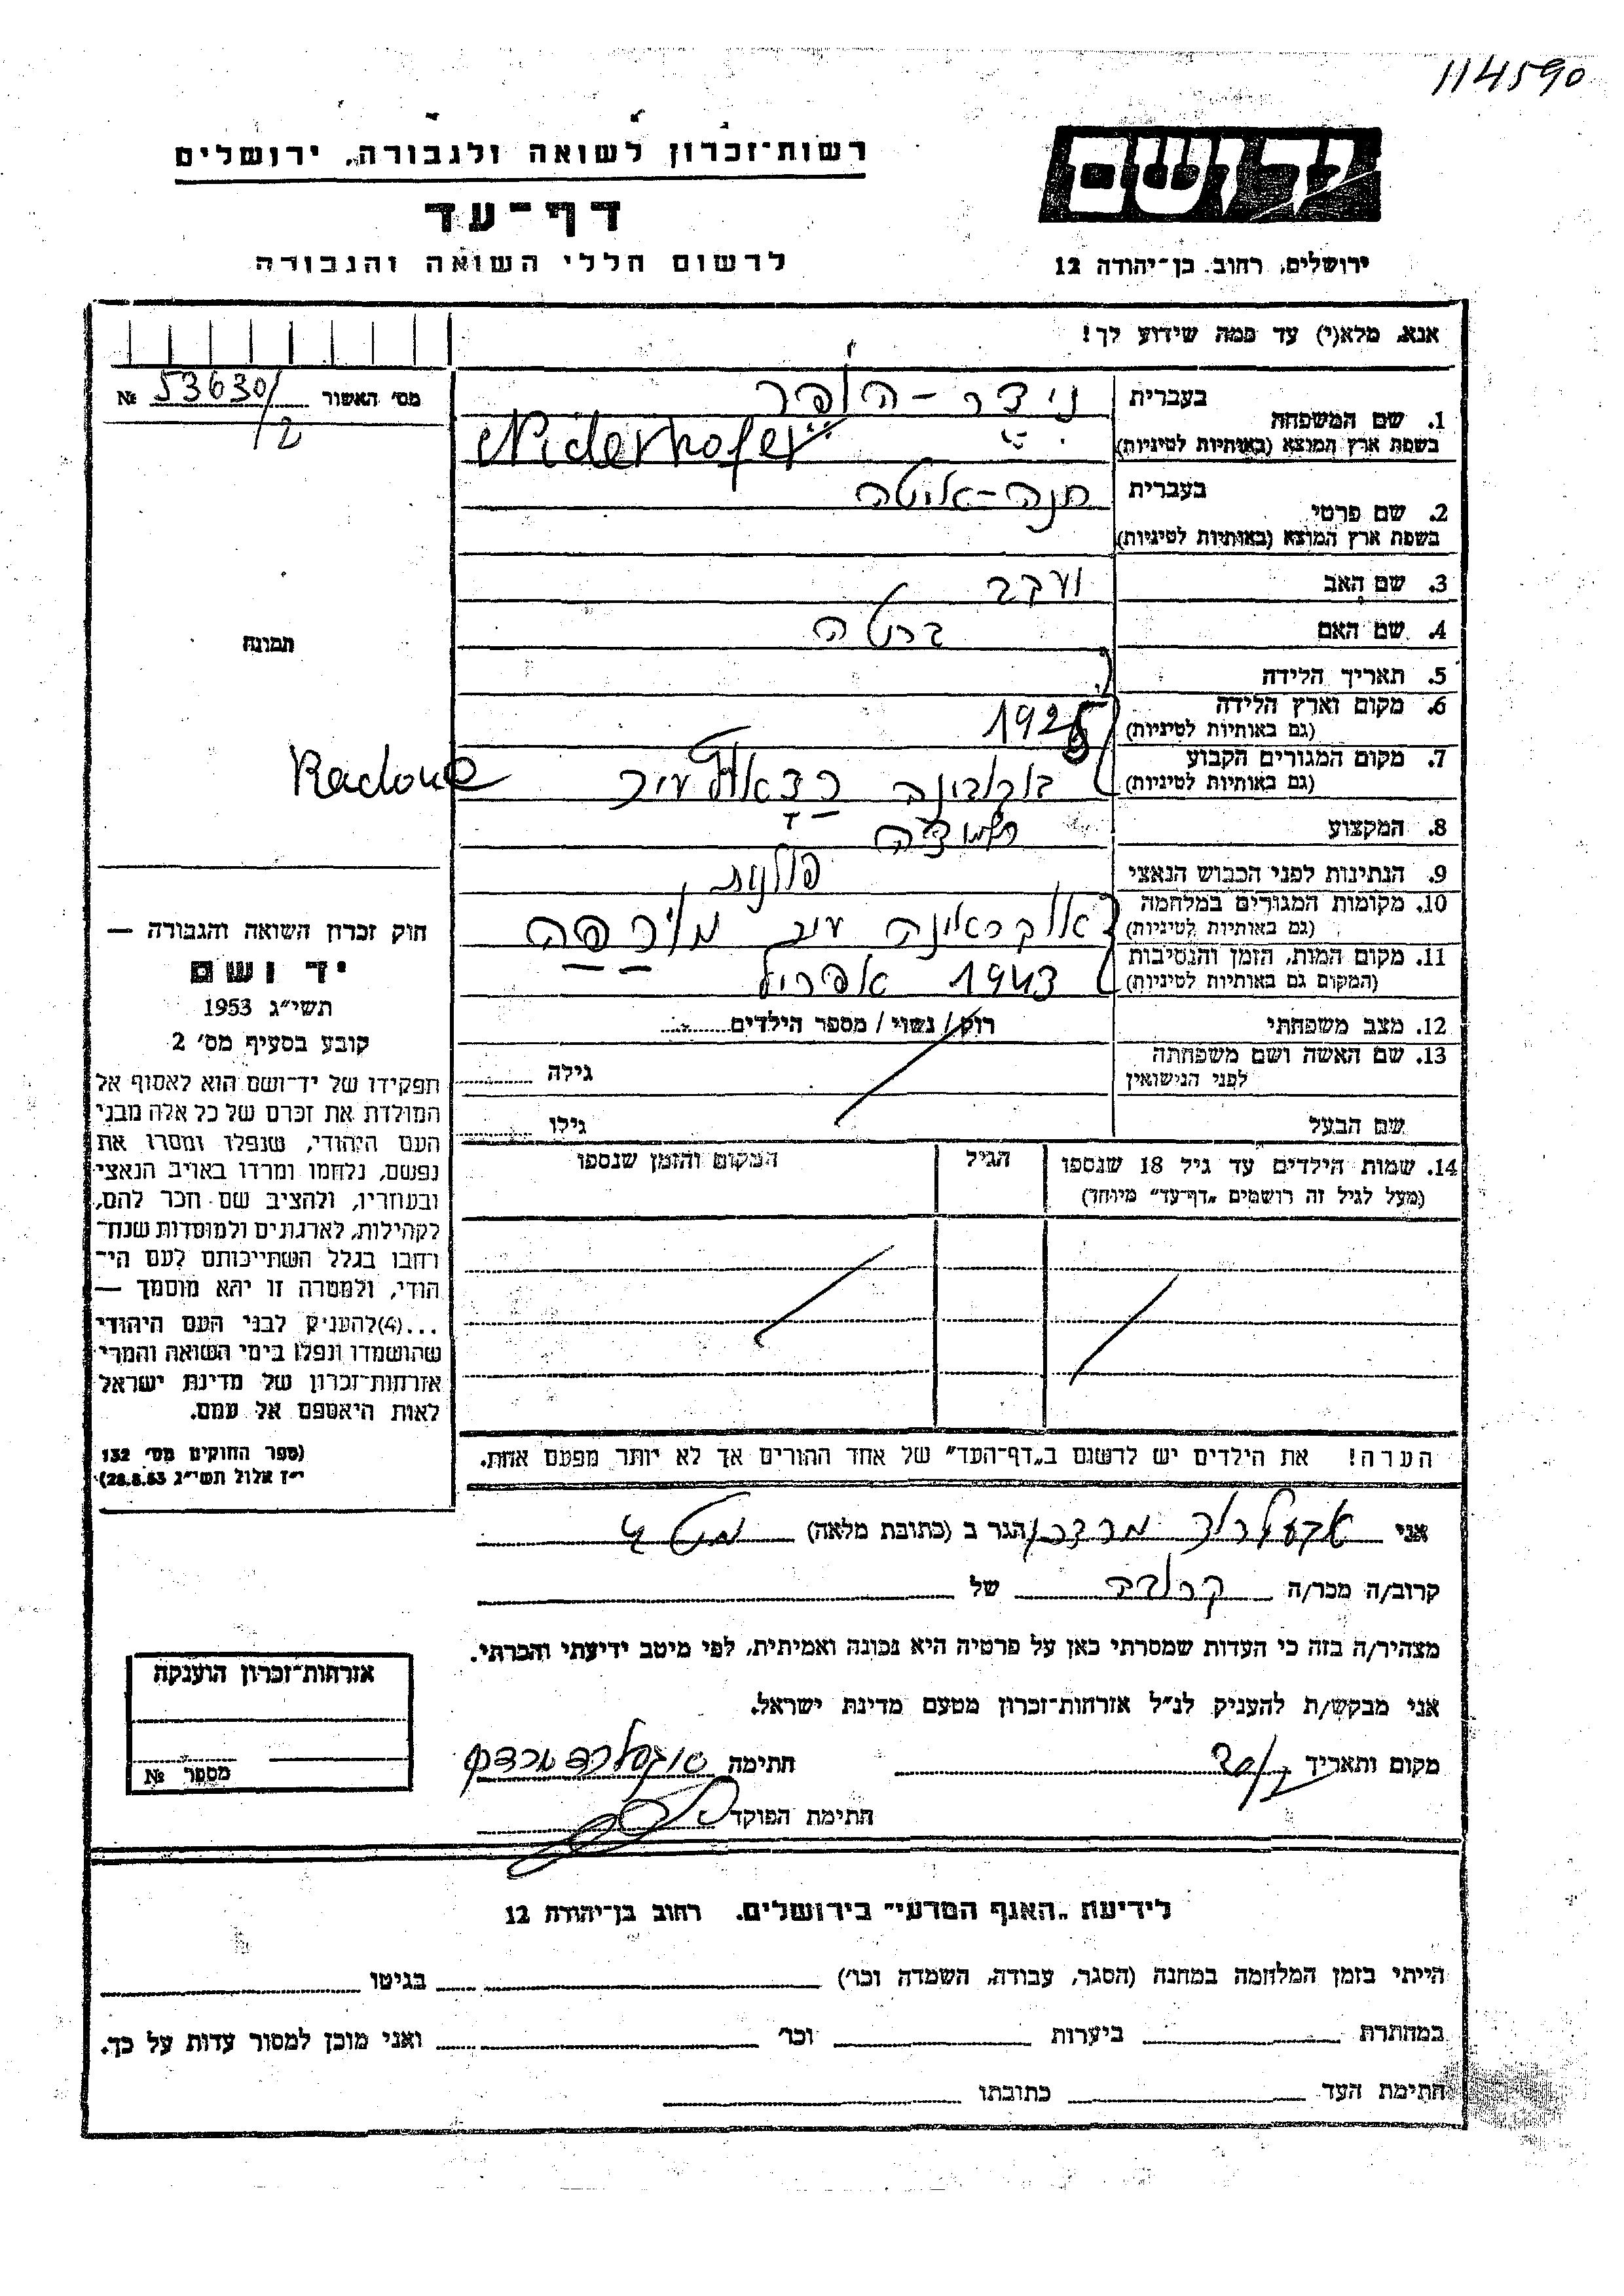 114590
יד ושם
רשות־זכרון לשואה ולגבורה, ירושלים
דף־עד
לרשום חללי השואה והגבורה
ירושלים, רחוב בן־יהודה 12
אנא, מלא(י) עד כמה שידוע לך!
מס׳ האשור 53630/ №
/2
1. שם המשפחה
בעברית ני דר - הופר
בשפת ארץ המוצא (באותיות לטיניות) Niderhofer
2. שם פרטי
בעברית חנה-איטה
בשפת ארץ המוצא (באותיות לטיניות)
3. שם האב יעקב
4. שם האם ברטה
5. תאריך הלידה
6. מקום וארץ הלידה
(גם באותיות לטיניות) 1925
7. מקום המגורים הקבוע
(גם באותיות לטיניות) בוקובינה
8. המקצוע
9. הנתינות לפני הכבוש הנאצי
10. מקומות המגורים במלחמה
(גם באותיות לטיניות) אוקראינה עיר
11. מקום המות, הזמן והנסיבות
(המקום גם באותיות לטיניות) 1943 אפריל
12. מצב משפחתי רווק / נשוי / מספר הילדים
13. שם האשה ושם משפחתה
לפני הנישואין
גילה
שם הבעל גילו
14. שמות הילדים עד גיל 18 שנספו
(מעל לגיל זה רושמים „דף־עד״ מיוחד)
הגיל
המקום והזמן שנספו
הערה! את הילדים יש לרשום ב„דף־העד״ של אחד ההורים אך לא יותר מפעם אחת.
תמונה
חוק זכרון השואה והגבורה —
יד ושם
תשי״ג 1953
קובע בסעיף מס׳ 2
תפקידו של יד־ושם הוא לאסוף אל
המולדת את זכרם של כל אלה מבני
העם היהודי, שנפלו ומסרו את
נפשם, נלחמו ומרדו באויב הנאצי
ובעוזריו, ולהציב שם וזכר להם,
לקהילות, לארגונים ולמוסדות שנח־
רבו בגלל השתייכותם לעם הי־
הודי, ולמטרה זו יהא מוסמך —
...(4)להעניק לבני העם היהודי
שהושמדו ונפלו בימי השואה והמרי
אזרחות־זכרון של מדינת ישראל
לאות היאספם אל עמם.
(ספר החוקים מס׳ 132
י״ז אלול תשי״ג 28.8.53)
אני מרדכי הגר ב (כתובת מלאה)
קרוב/ה מכר/ה קרובה של
מצהיר/ה בזה כי העדות שמסרתי כאן על פרטיה היא נכונה ואמיתית, לפי מיטב ידיעתי והכרתי.
אני מבקש/ת להעניק לנ״ל אזרחות־זכרון מטעם מדינת ישראל.
מקום ותאריך חתימה
חתימת הפוקד
אזרחות־זכרון הוענקה
מספר №
לידיעת „האגף המדעי״ בירושלים, רחוב בן־יהודה 12
הייתי בזמן המלחמה במחנה (הסגר, עבודה, השמדה וכו׳) בגיטו
במחתרת ביערות וכו׳ ואני מוכן למסור עדות על כך.
חתימת העד כתובתו